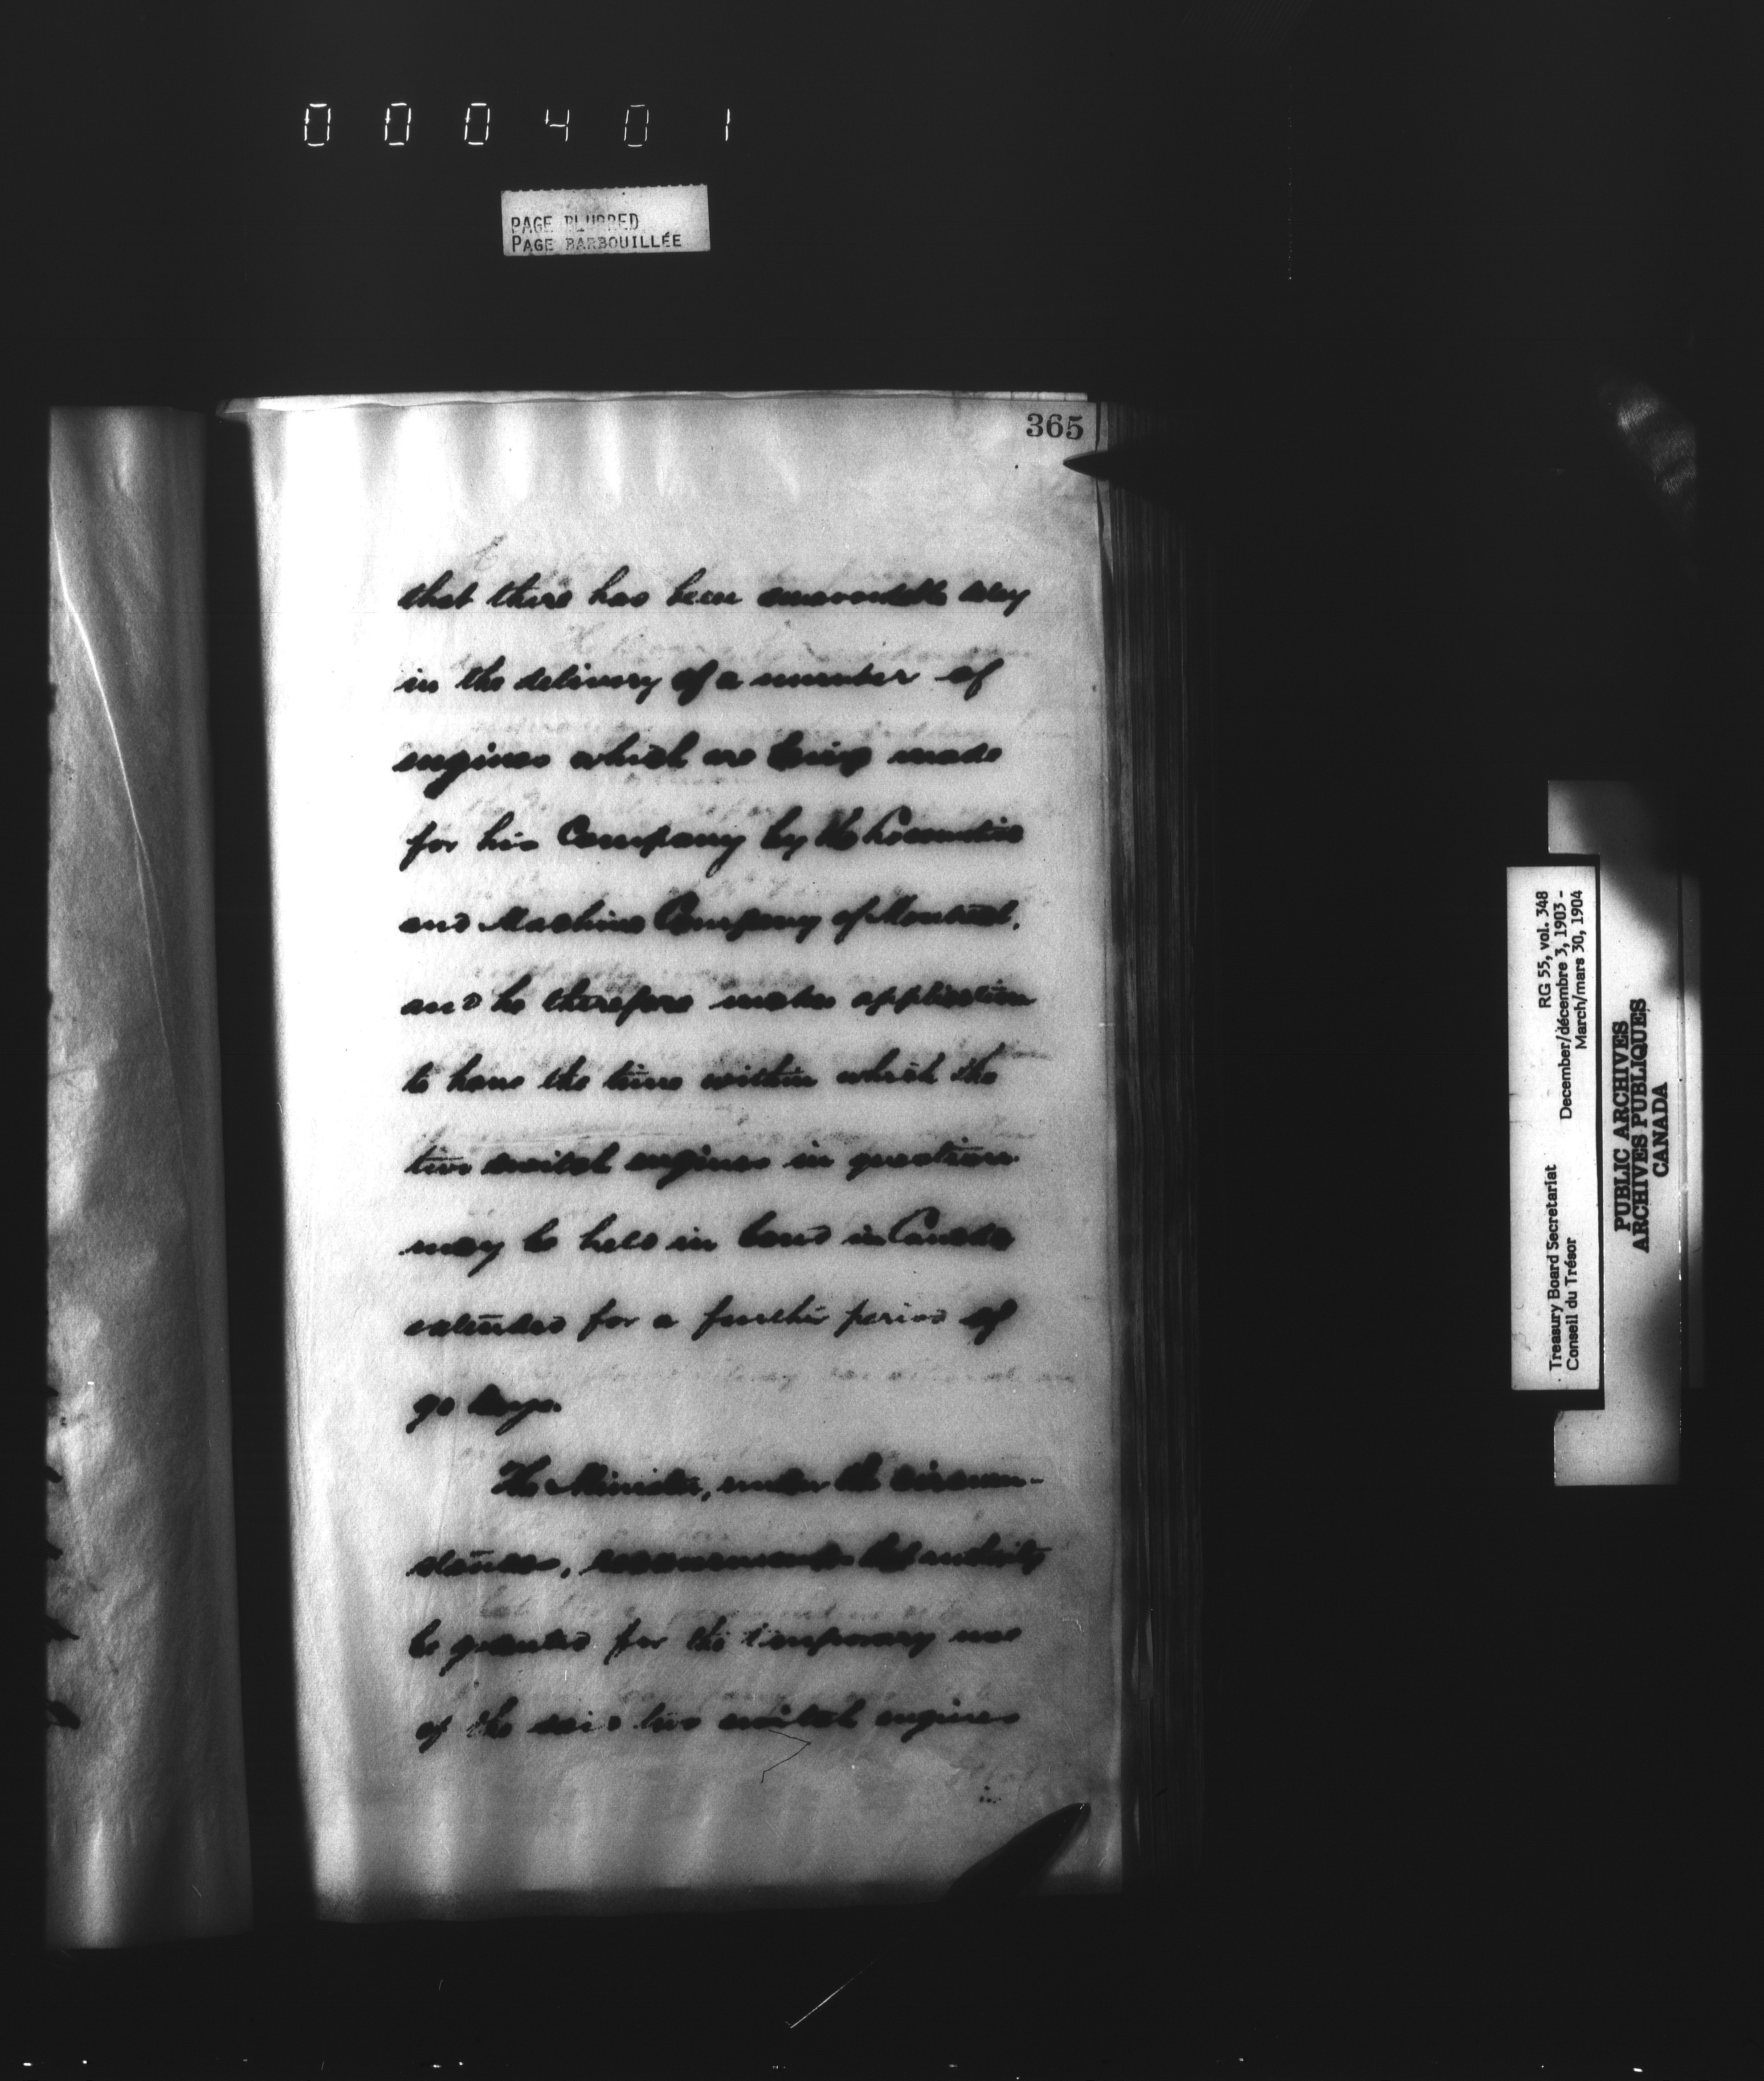 000401
PAGE BLURRED
PAGE BARBOUILLÉE
365
that there has been unavoidable delay
in the delivery of a number of
engines which are being made
for his Company by the Locomotive
and Machine Company of Montreal,
and he therefore makes application
to have the time within which the
two switch engines in question
may be held in bond in Canada
extended for a further period of
90 days.
The Minister, under the circum-
stances, recommends that authority
be granted for the temporary use
of the said two switch engines
in
RG 55, vol. 348
December/décembre 3, 1903 -
March/mars 30, 1904
Treasury Board Secretariat
Conseil du Trésor
PUBLIC ARCHIVES
ARCHIVES PUBLIQUES
CANADA